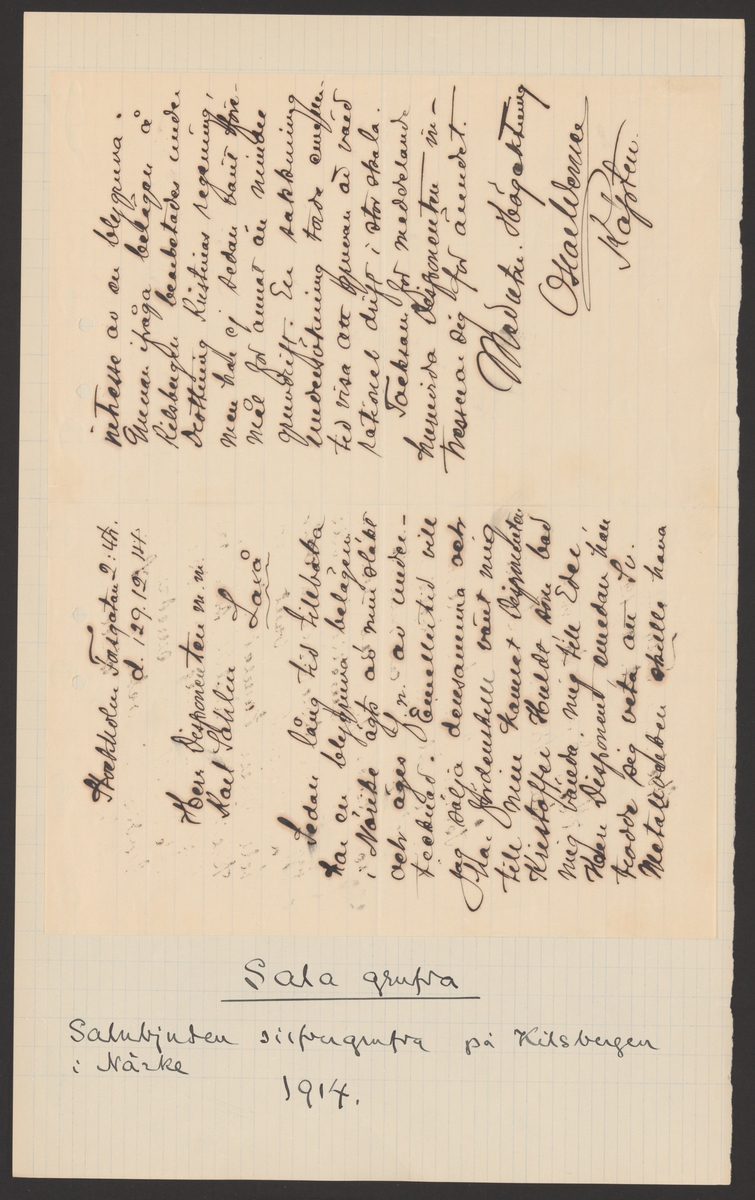 Stockholm Torsgatan 2: 4tr.
d. 29.12.14
Herr Disponenten m.m.
Karl Sahlin
Laxå
Sedan lång tid tillbaka
har en blygruva belägen
i Närike ägts av min släkt
och äges n. av under-
tecknad. Emellertid vill
jag sälja densamma och
har händelsevis vänt mig
till min kamrat Disponenten
Kristoffer Huldt som bad
mig vända mig till Eder
Herr Disponent emedan han
trodde sig veta att Sv.
Metallverken skulle hava
intresse av en blygruva.
Gruvan ifråga belägen å
Kilsbergen bearbetades under
drottning Kristinas regering,
men har ej sedan varit före-
mål för annat än mindre
gruvdrift. En sakkunnig
undersökning torde emeller-
tid visa att gruvan är värd
rationel drift i stor skala.
Tacksam för meddelande
huruvida Disponenten in-
tresserar sig för ämnet.
Med utm. Högaktning
Oscar Werner
Kapten.
Sala grufva
Salubjuden silfvergrufva på Kilsbergen
i Närke
1914.